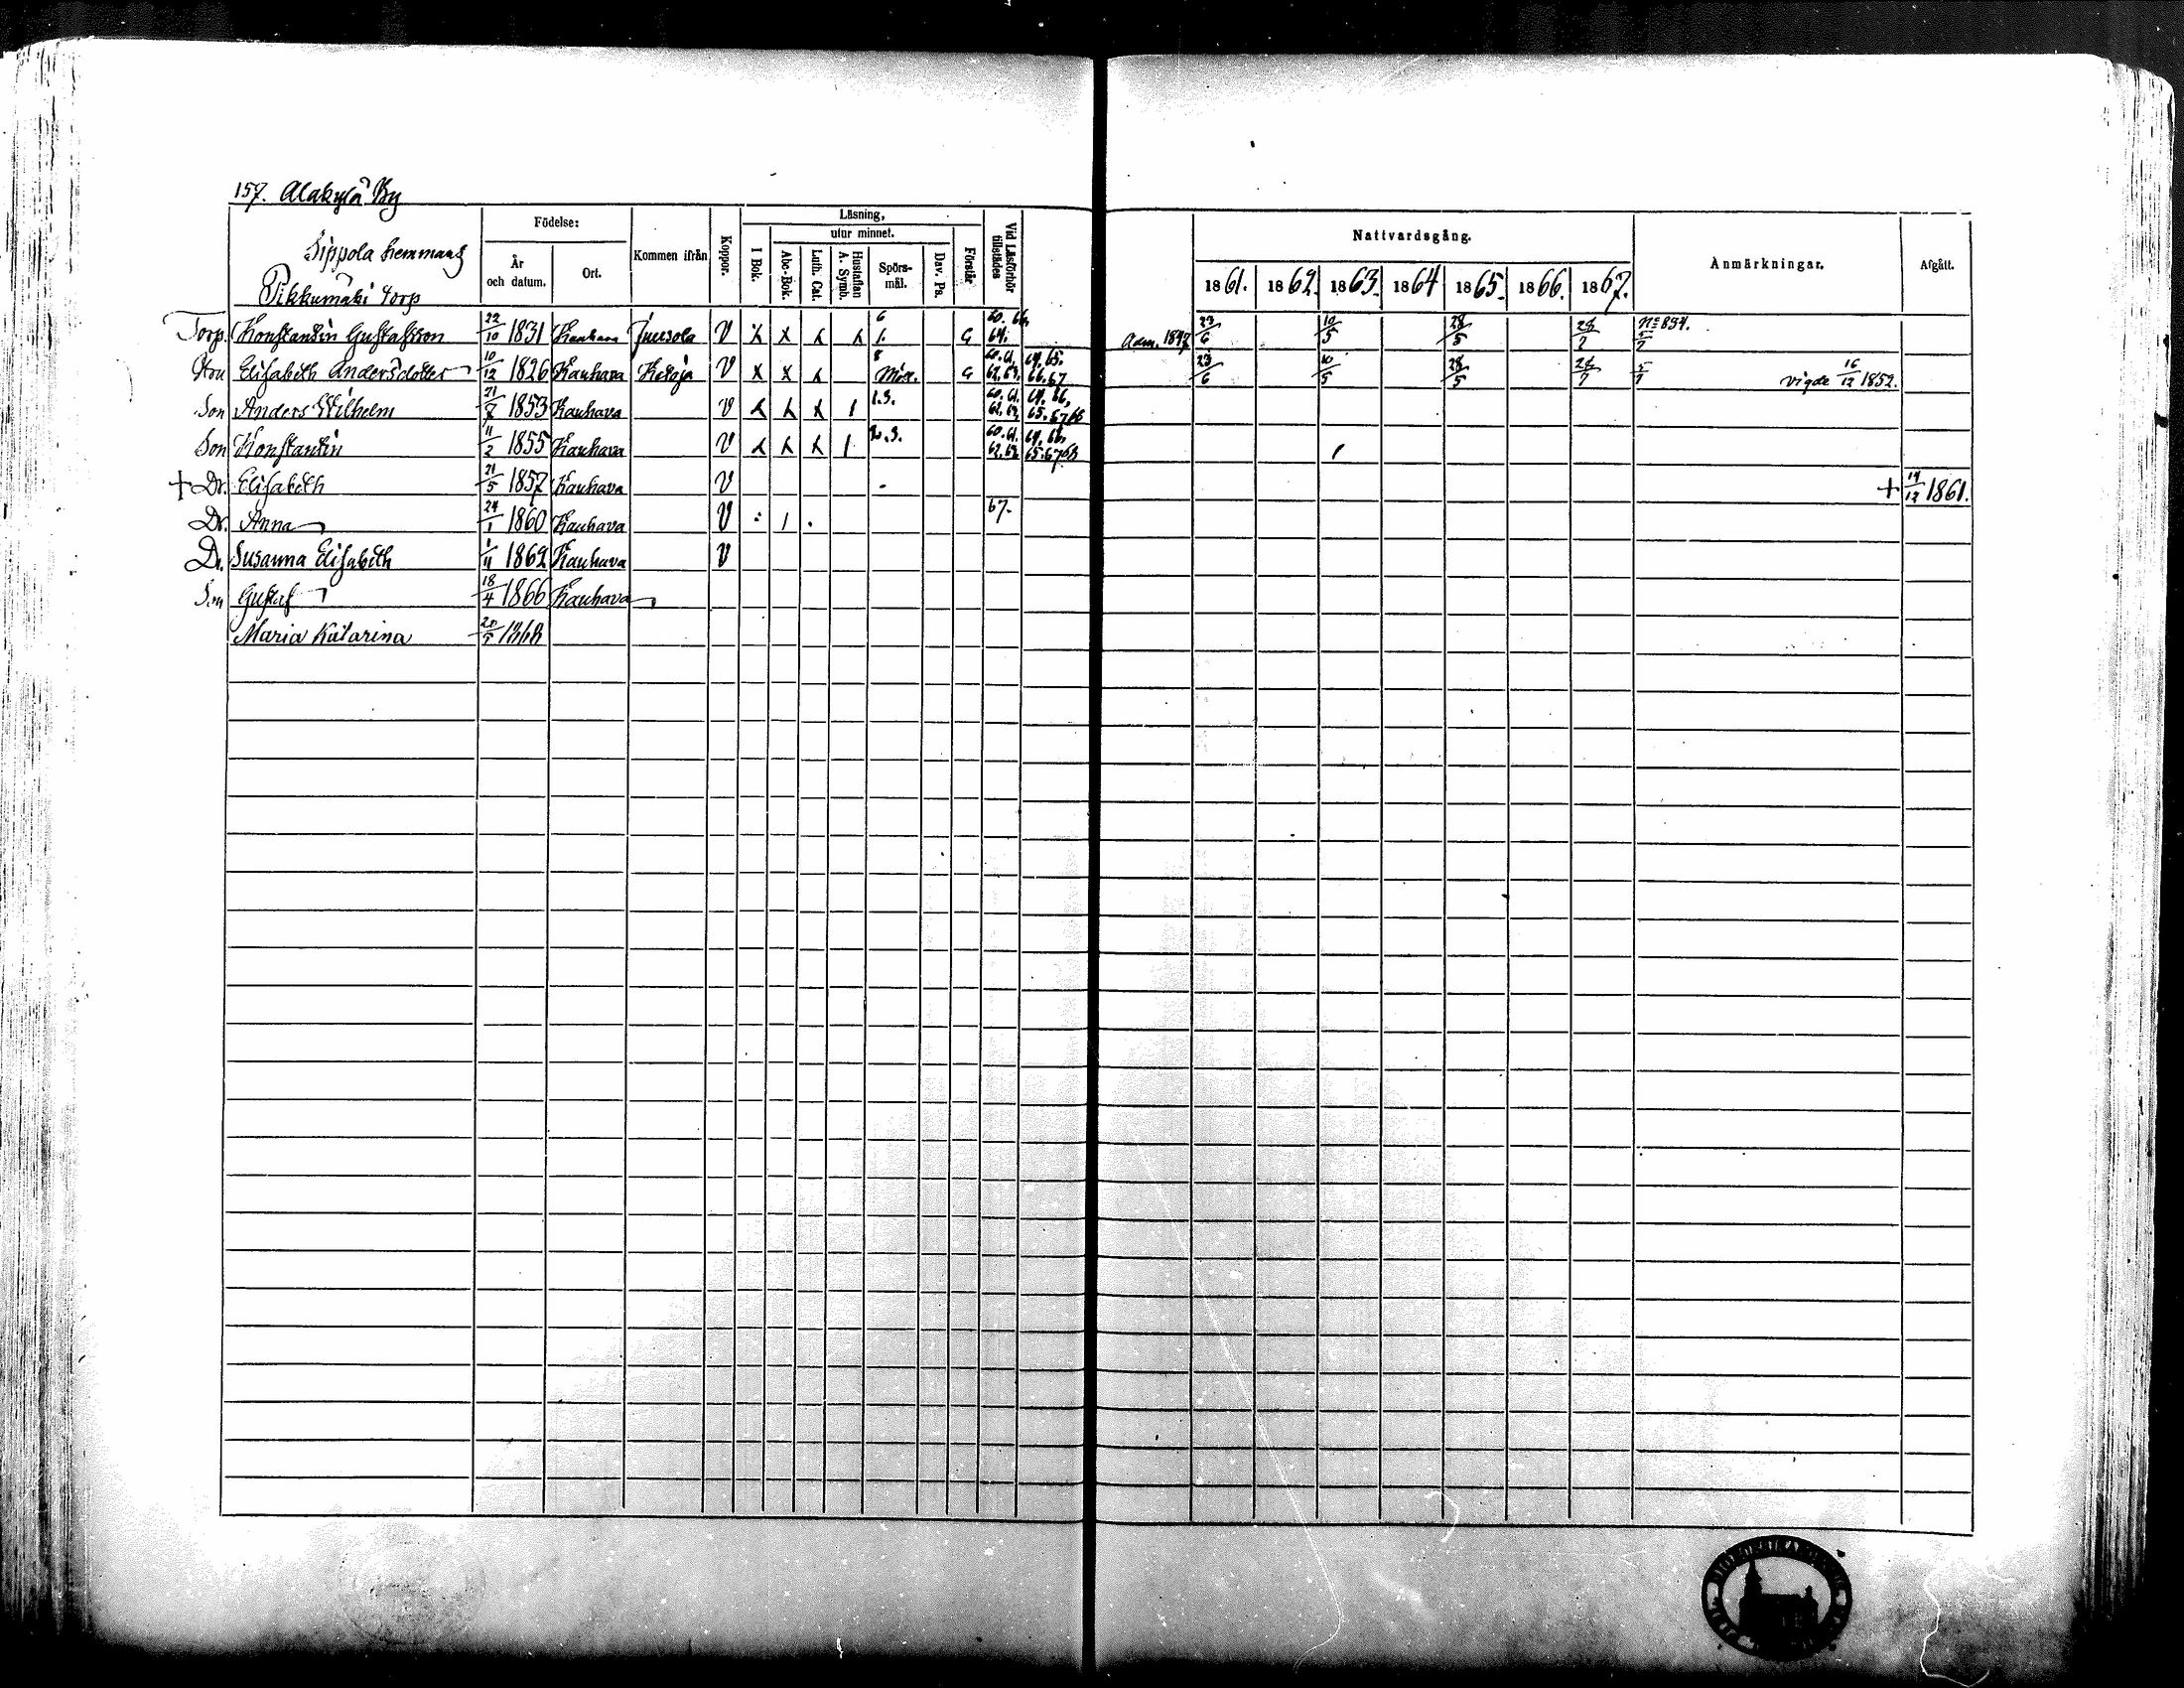 157. Alakylä By
Sippola hemmans
Pikkumäki torp
Födelse: År och datum. Ort. Kommen ifrån Koppor. Läsning, I Bok. utur minnet. Abc-Bok. Luth. Cat. Hustaflan A. Symb. Spörs-mål. Dav. Ps. Förstår Vid Läsförhör tillstädes Nattvardsgång. 1861. 1862. 1863. 1864 1865. 1866. 1867. Anmärkningar. Afgått.
Torp. Konstantin Gustafsson 22/10 1831 Kauhava Juusola V x x x x 6 1. G 60. 66. 64. Adm. 1847 23/6 10/5 28/5 28/7 5/7 N:o 854.
Hon Elisabeth Andersdotter 10/12 1826 Kauhava Ketoja V x x x 8 G 60. 61. 62. 63. 64. 65. 66. 67 23/6 10/5 28/5 28/7 5/7 vigde 16/12 1852.
Son Anders Wilhelm 21/7 1853 Kauhava V x x x 1 1.3. 60. 61. 62. 63. 64. 66. 65. 67 68
Son Konstantin 11/2 1855 Kauhava V x x x 1 60. 61. 62. 63. 64. 66. 65. 67 68
+ Dr. Elisabeth 21/5 1857 Kauhava V + 14/12 1861.
Dr. Anna 24/1 1860 Kauhava V : 1 . 67.
Dr. Susanna Elisabeth 1/11 1862 Kauhava V
Son Gustaf 18/4 1866 Kauhava
Maria Katarina 20/5 1868